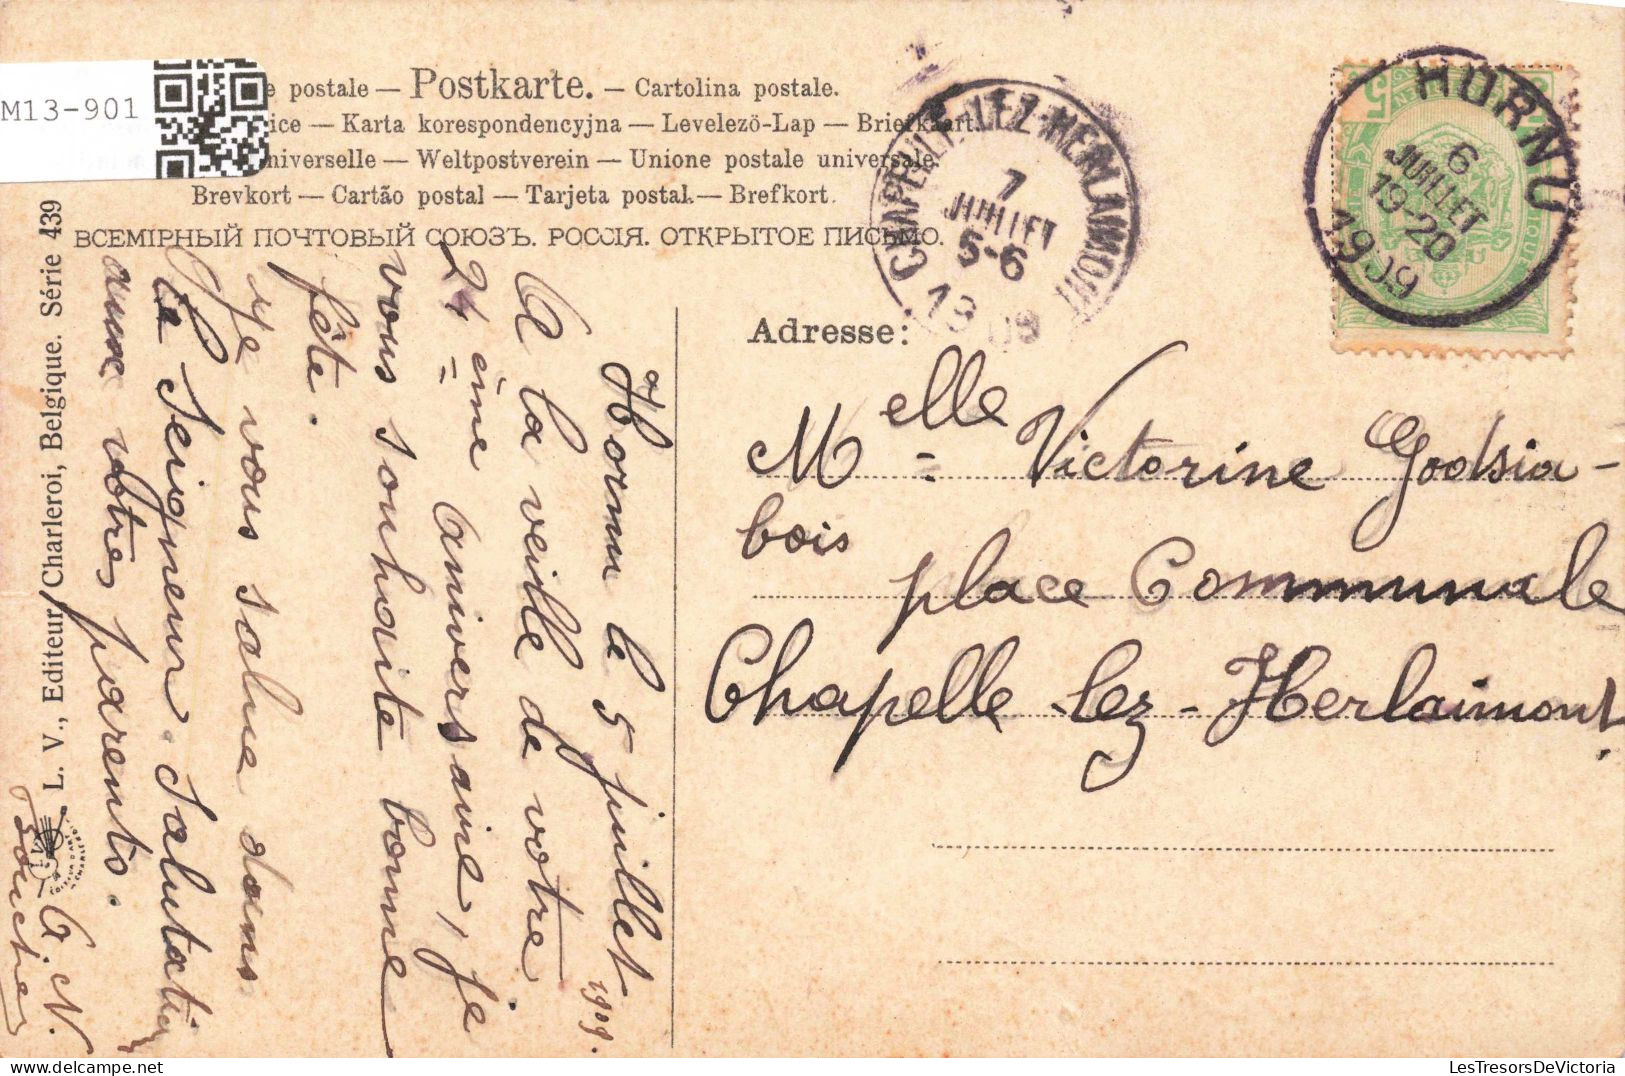 M13-901
e postale — Postkarte. — Cartolina postale.
ice — Karta korespondencyjna — Levelező-Lap — Briefkaart.
niverselle — Weltpostverein — Unione postale universale.
Brevkort — Cartão postal — Tarjeta postal — Brefkort.
ВСЕМІРНЫЙ ПОЧТОВЫЙ СОЮЗЪ. РОССІЯ. ОТКРЫТОЕ ПИСЬМО.
CHAPELLE-LEZ-HERLAIMONT
7
JUILLET
5-6
1909
HORNU
6
JUILLET
19-20
1909
Adresse:
Melle = Victorine Godsia-
bois
place Communale
Chapelle-lez-Herlaimont.
Hornu le 5 juillet 1909.
A la veille de votre
24 ème aniversaire, je
vous souhaite bonne
fête.
Je vous salue dans
le Seigneur. Salutation
aux votres parents.
A. N.
L. V., Editeur, Charleroi, Belgique. Série 439
LesTresorsDeVictoria